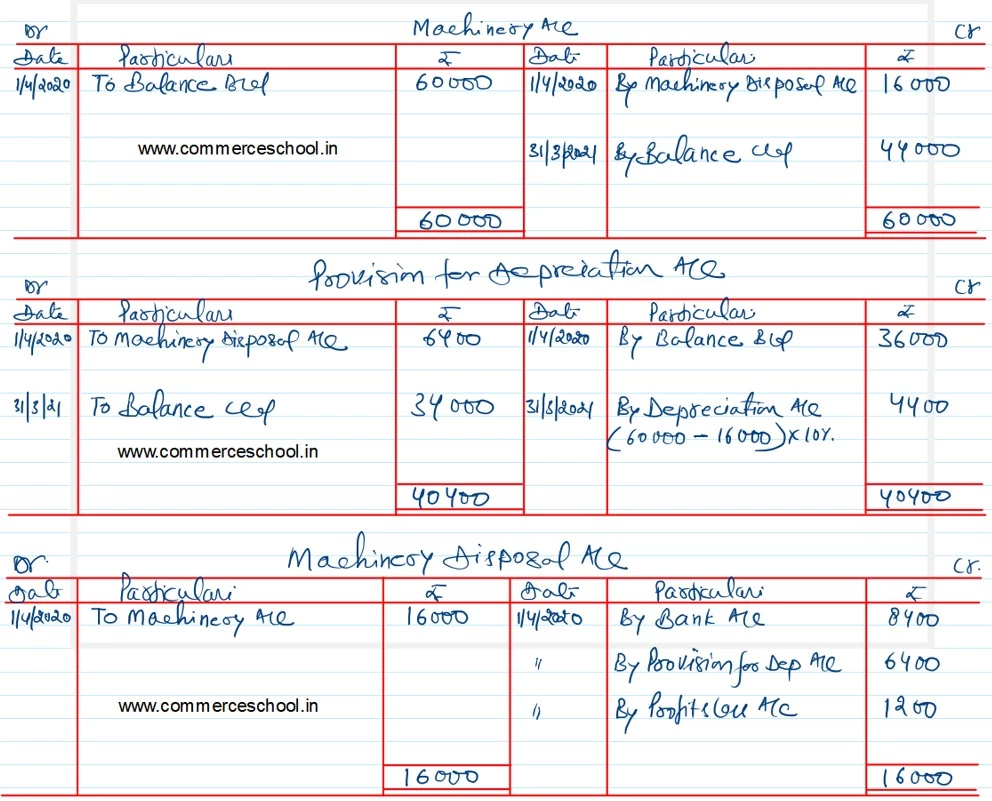 Machinery A/c
Dr Cr
Date Particulars ₹ Date Particulars ₹
1/4/2020 To Balance B/d 60000 1/4/2020 By Machinery Disposal A/c 16000
www.commerceschool.in 31/3/2021 By Balance c/d 44000
60000 60000
Provision for Depreciation A/c
Dr Cr
Date Particulars ₹ Date Particulars ₹
1/4/2020 To Machinery Disposal A/c 6400 1/4/2020 By Balance B/d 36000
31/3/21 To Balance c/d 34000 31/3/2021 By Depreciation A/c 4400
(60000 - 16000) x 10%.
www.commerceschool.in
40400 40400
Machinery Disposal A/c
Dr. Cr.
Date Particulars ₹ Date Particulars ₹
1/4/2020 To Machinery A/c 16000 1/4/2020 By Bank A/c 8400
" By Provision for Dep A/c 6400
www.commerceschool.in " By Profit & Loss A/c 1200
16000 16000